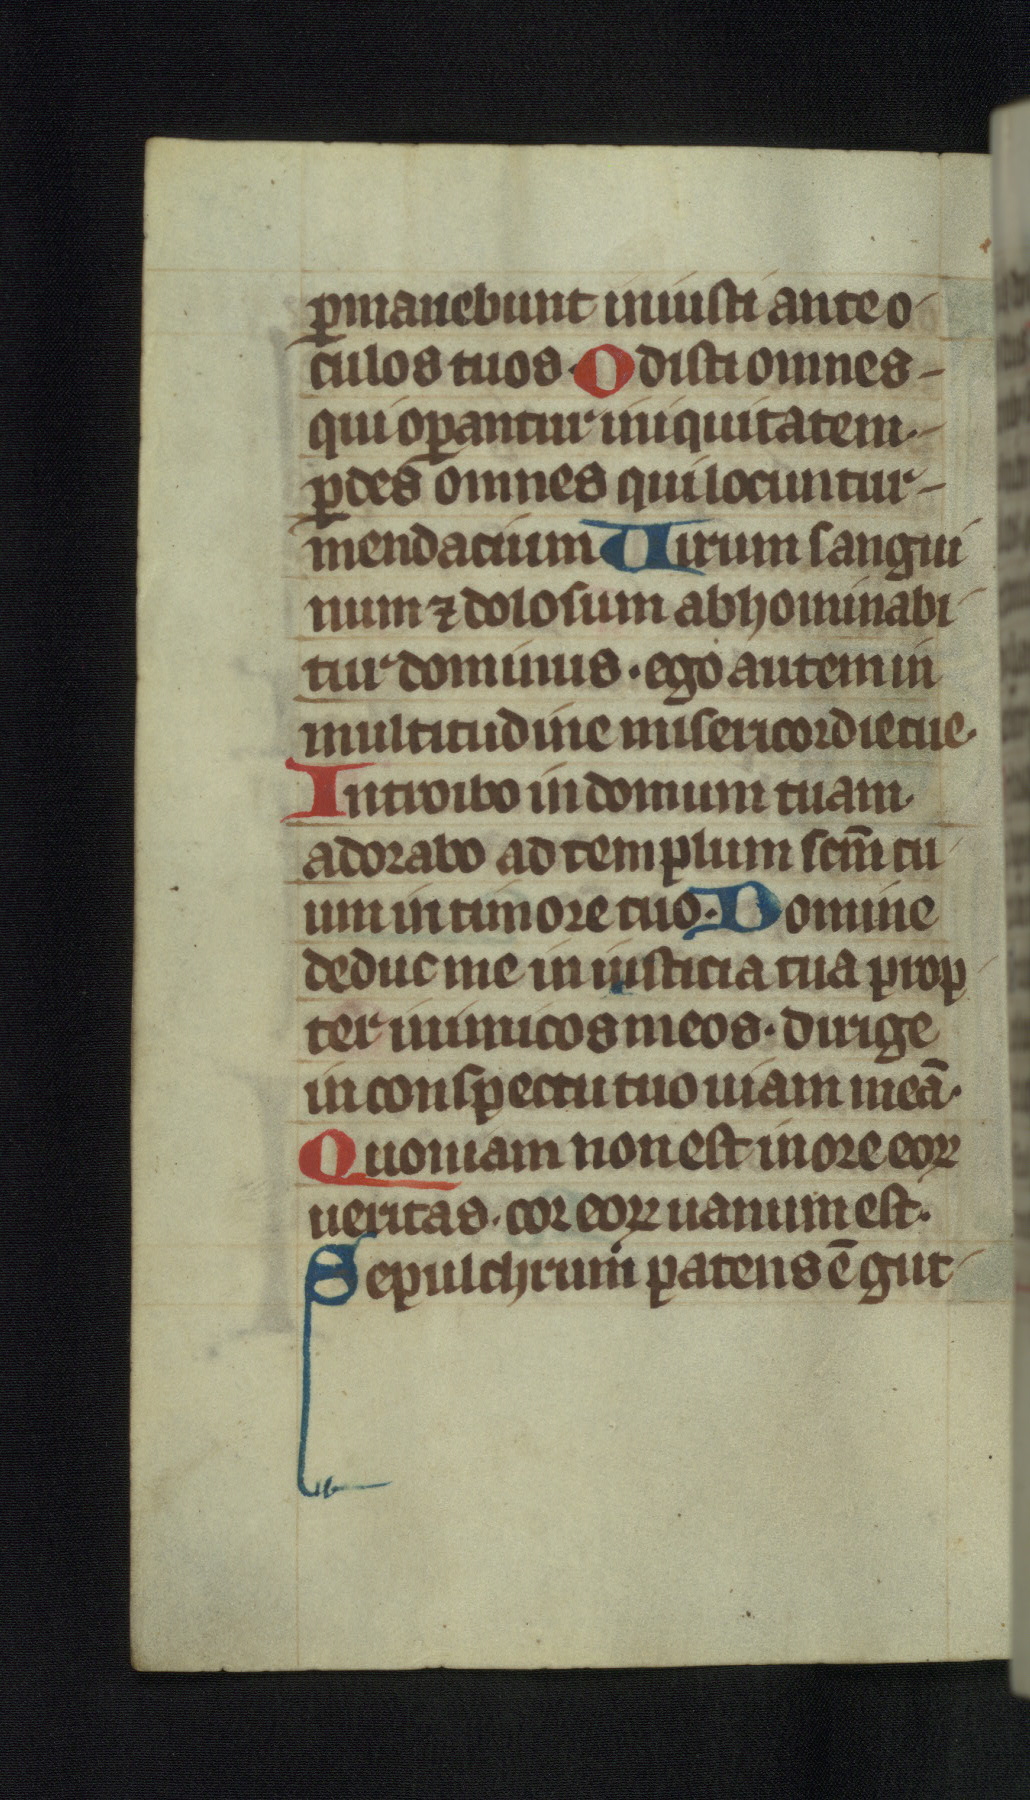 ꝑmanebunt iniusti ante o-
culos tuos· Odisti omnes-
qui oꝑantur iniquitatem·-
ꝑdes omnes qui locuntur-
mendacium Uirum sangui
num ⁊ dolosum abhominabi-
tur dominus· ego autem in
multitudine misericordie tue·
Introibo in domum tuam·
adorabo ad templum scm̄ tu-
um in timore tuo· Domine
deduc me in iusticia tua prop-
ter inimicos meos· dirige
in conspectu tuo uiam meā·
Quoniam non est in ore eoꝝ
ueritas· cor eoꝝ uanum est·
Sepulchrum patens ē gut-